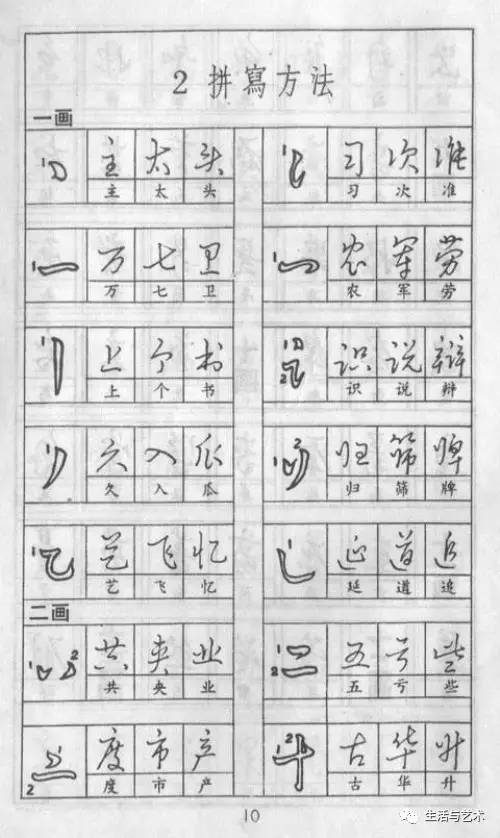 2 拼寫方法
一画
主 太 头 习 次 准
主 太 头 习 次 准
万 七 卫 农 军 劳
万 七 卫 农 军 劳
上 个 书 识 说 辩
上 个 书 识 说 辩
久 入 瓜 归 筛 牌
久 入 瓜 归 筛 牌
艺 飞 忆 延 道 追
艺 飞 忆 延 道 追
二画
共 央 业 五 亏 些
共 央 业 五 亏 些
度 市 产 古 华 升
度 市 产 古 华 升
10
生活与艺术